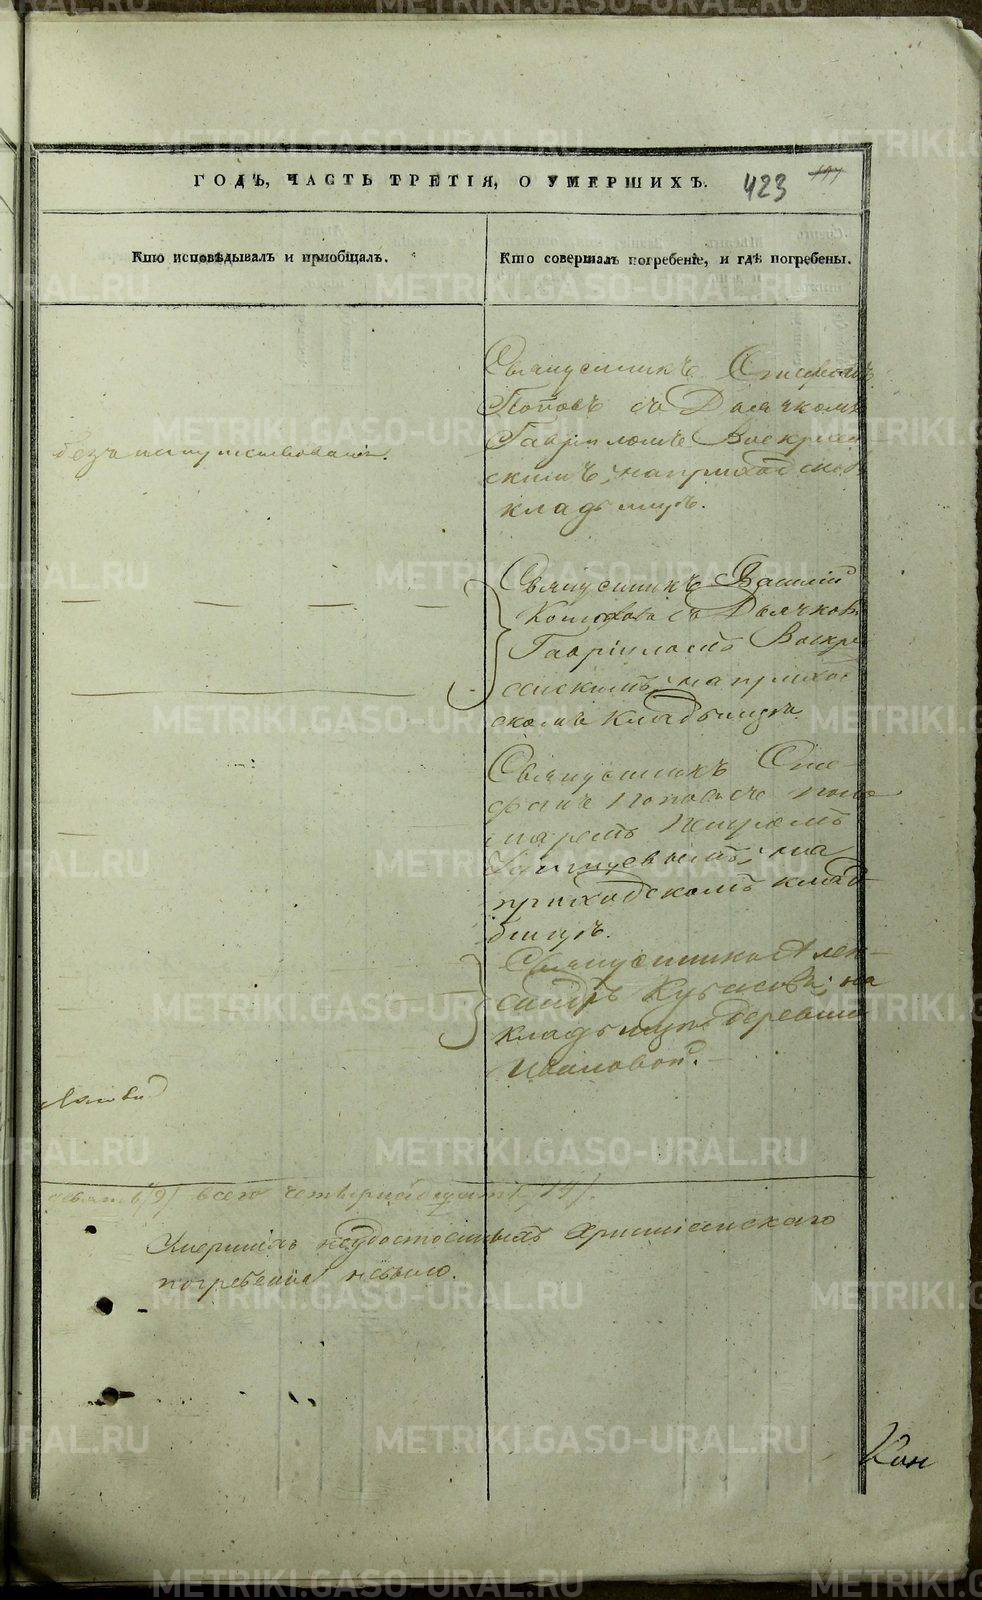 ГОДЪ, ЧАСТЬ ТРЕТІЯ, О УМЕРШИХЪ. 423
Кто исповѣдывалъ и пріобщалъ.
Кто совершалъ погребеніе, и гдѣ погребены.
безъ напутствованія.
Священникъ Стефанъ
Поповъ съ Дьячкомъ
Гавріиломъ Воскресен-
скимъ, на приходском
кладбищѣ.
Священникъ Василій
съ Дьячком
Гавріиломъ Воскре
сенскимъ, на приход
скомъ кладбищѣ.
Священникъ Сте-
фанъ Поповъ съ поно
маремъ Петромъ
на
приходскомъ клад
бищѣ.
Священникъ Алек-
сандръ на
кладбищѣ деревни
Ивановой.
всего четырнадцать /14/.
Умершихъ неудостоенныхъ Христіанскаго
погребенія небыло.
Кон
METRIKI.GASO-URAL.RU